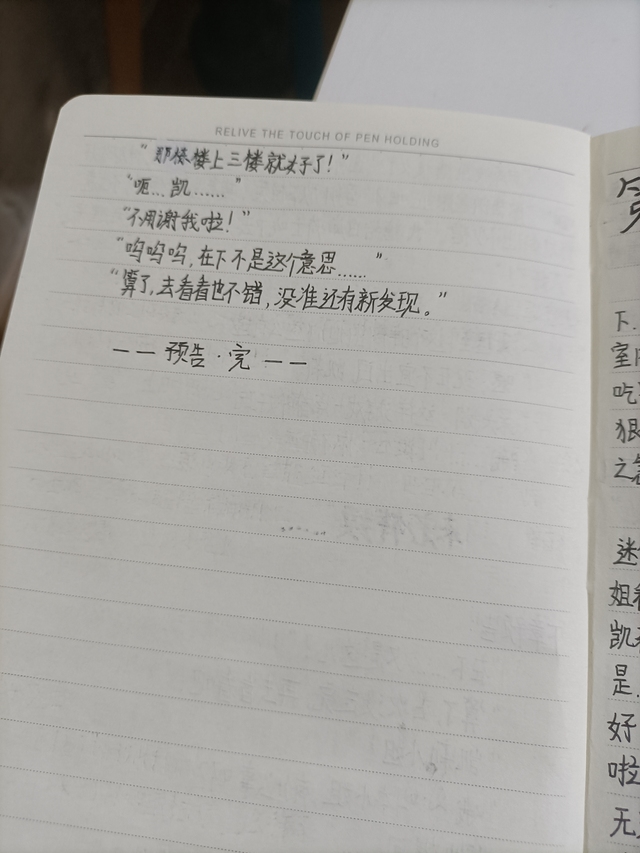 RELIVE THE TOUCH OF PEN HOLDING
“那栋楼上三楼就好了！”
“呃…凯……”
“不用谢我啦！”
“呜呜呜，在下不是这个意思……”
“算了，去看看也不错，没准还有新发现。”
——预告·完——
下
室
吃
狠
之
迷
姐
凯
是
好
啦
无